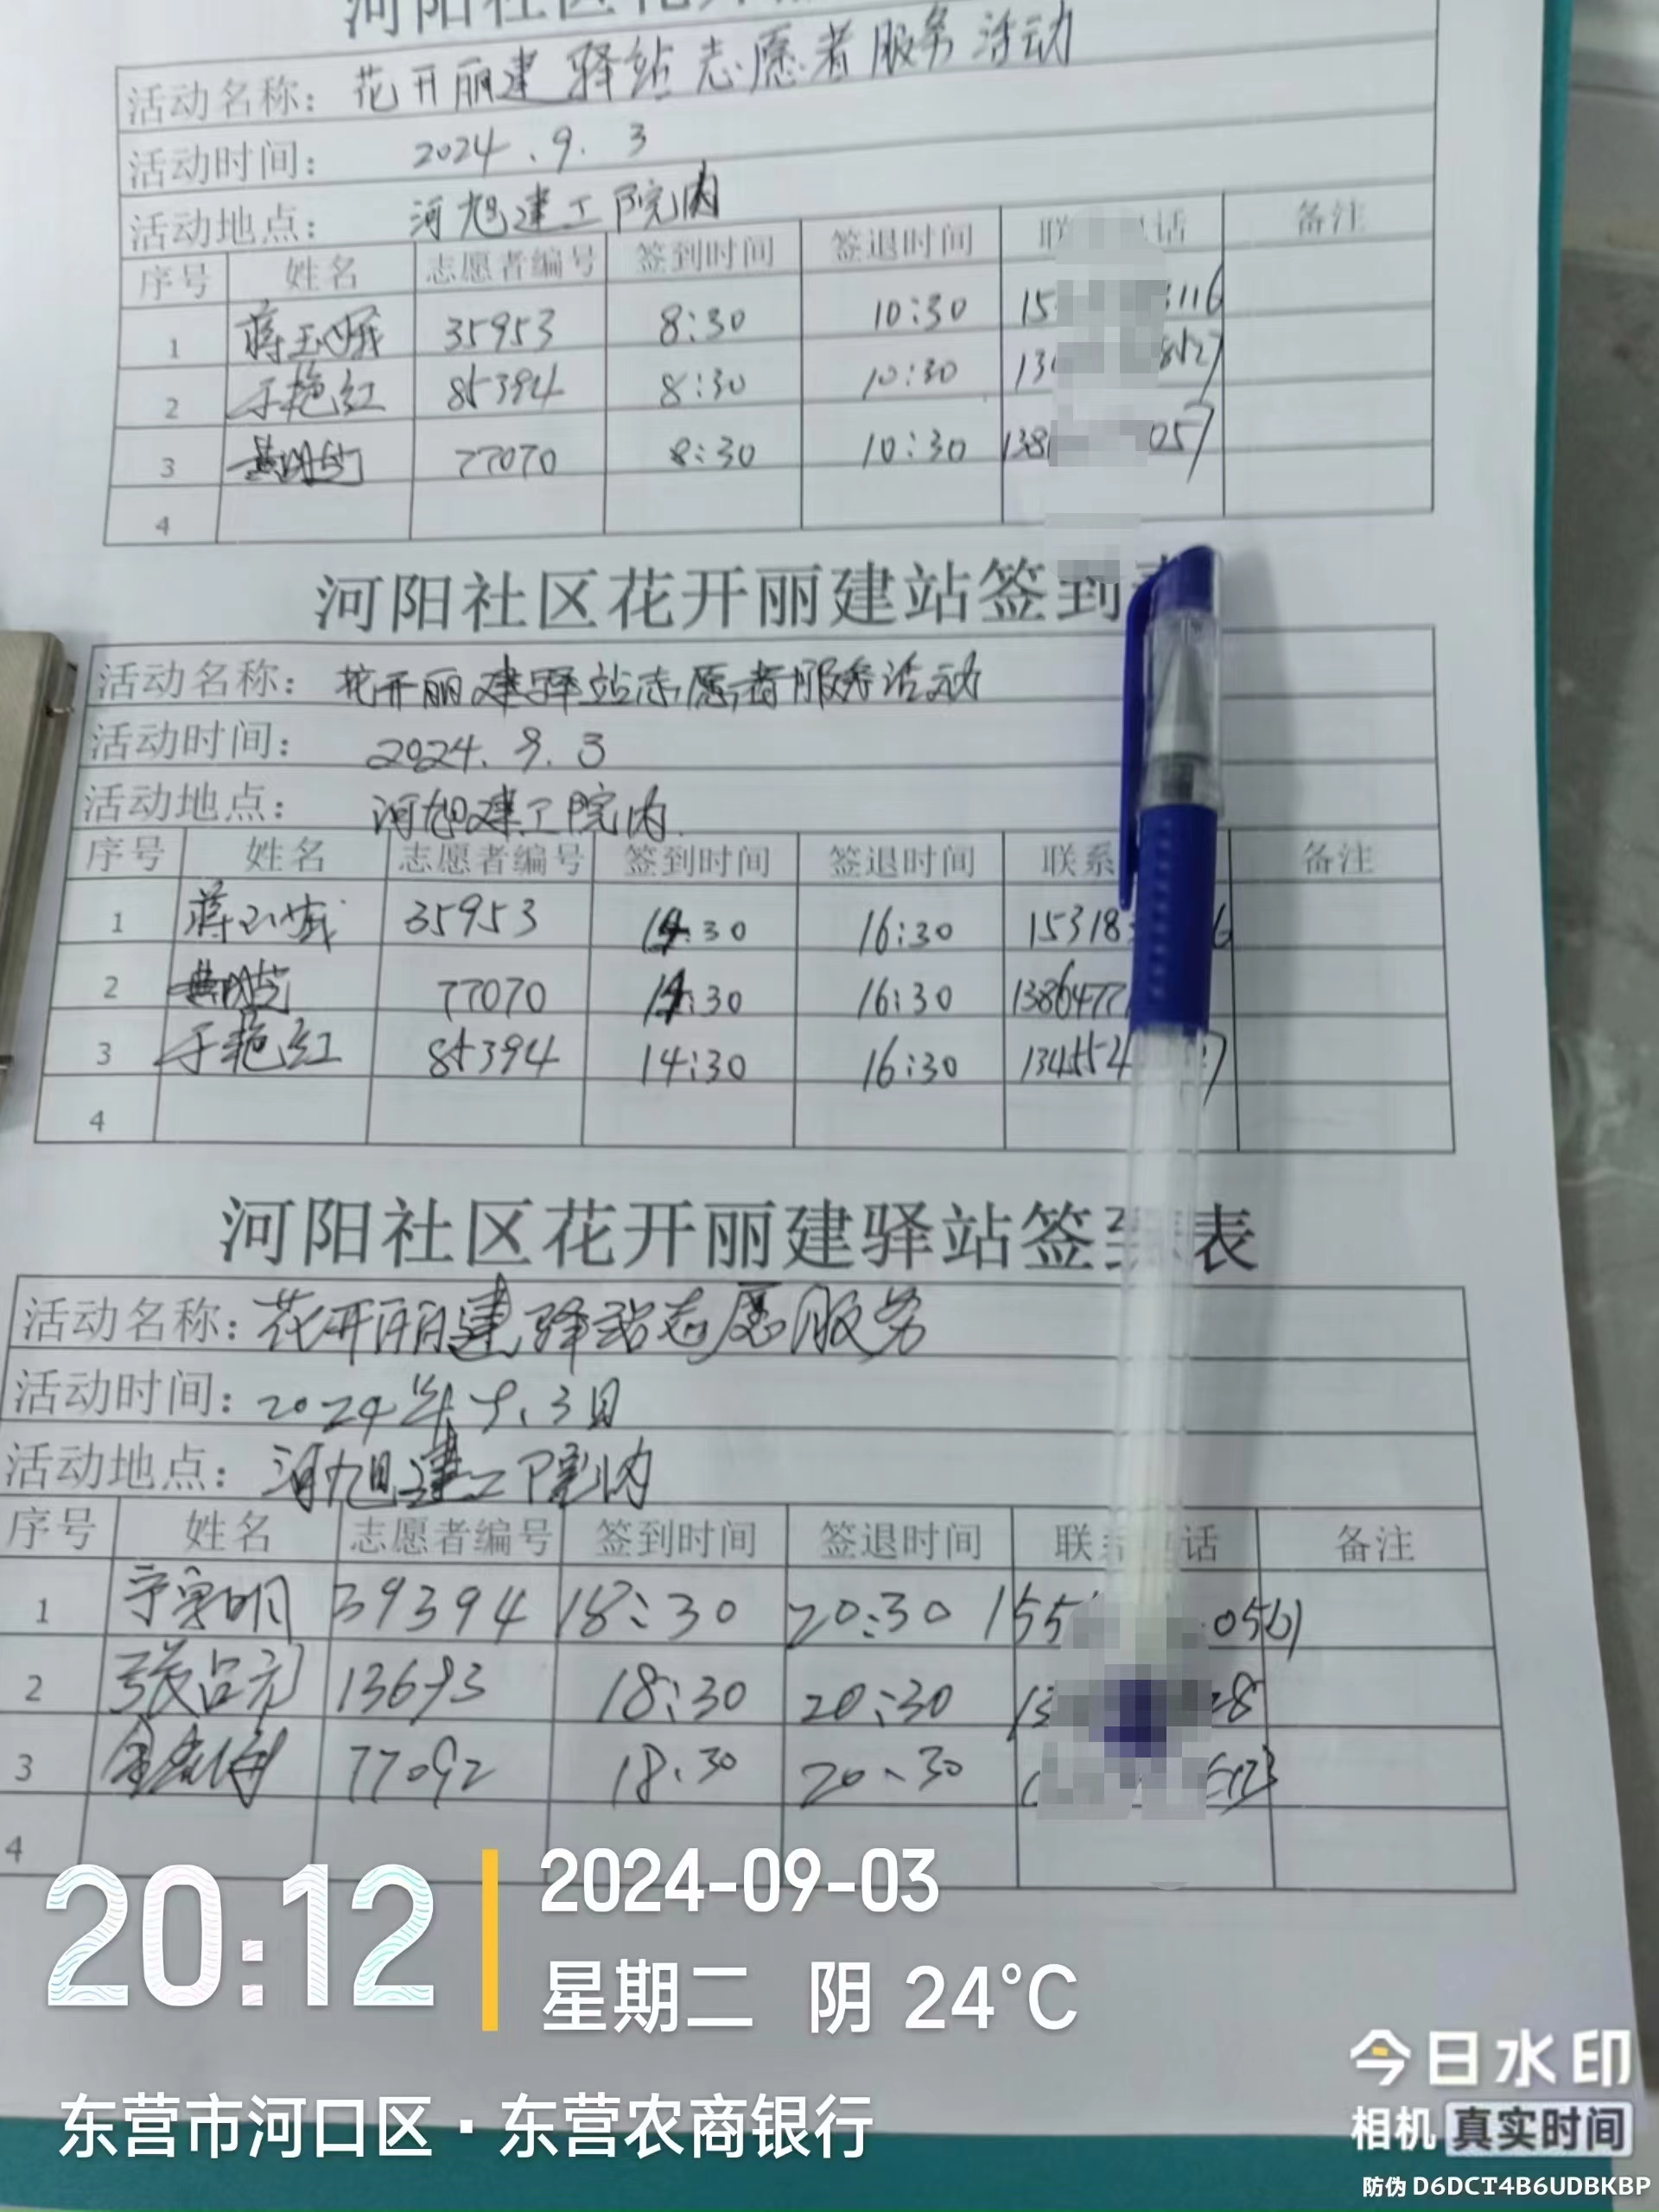 河阳社区花开
活动名称：花开丽建驿站志愿者服务活动
活动时间： 2024.9.3
活动地点： 河旭建工院内
序号 姓名 志愿者编号 签到时间 签退时间 联 话 备注
1 蒋玉娥 35953 8:30 10:30 15 3116
2 于艳红 85394 8:30 10:30 13 8527
3 77070 8:30 10:30 138 057
4
河阳社区花开丽建站签到表
活动名称： 花开丽建驿站志愿者服务活动
活动时间： 2024.9.3
活动地点： 河旭建工院内
序号 姓名 志愿者编号 签到时间 签退时间 联系 备注
1 蒋玉娥 35953 14:30 16:30 15318 6
2 77070 14:30 16:30 1386477
3 于艳红 85394 14:30 16:30 134554 7
4
河阳社区花开丽建驿站签到表
活动名称：花开丽建驿站志愿服务
活动时间：2024年9.3日
活动地点： 河旭建工院内
序号 姓名 志愿者编号 签到时间 签退时间 联系 话 备注
1 39394 18:30 20:30 155 0561
2 张吕元 13693 18:30 20:30 13 28
3 77092 18.30 20、30
4
20:12
2024-09-03
星期二 阴 24°C
东营市河口区·东营农商银行
今日水印
相机 真实时间
防伪 D6DCT4B6UDBKBP